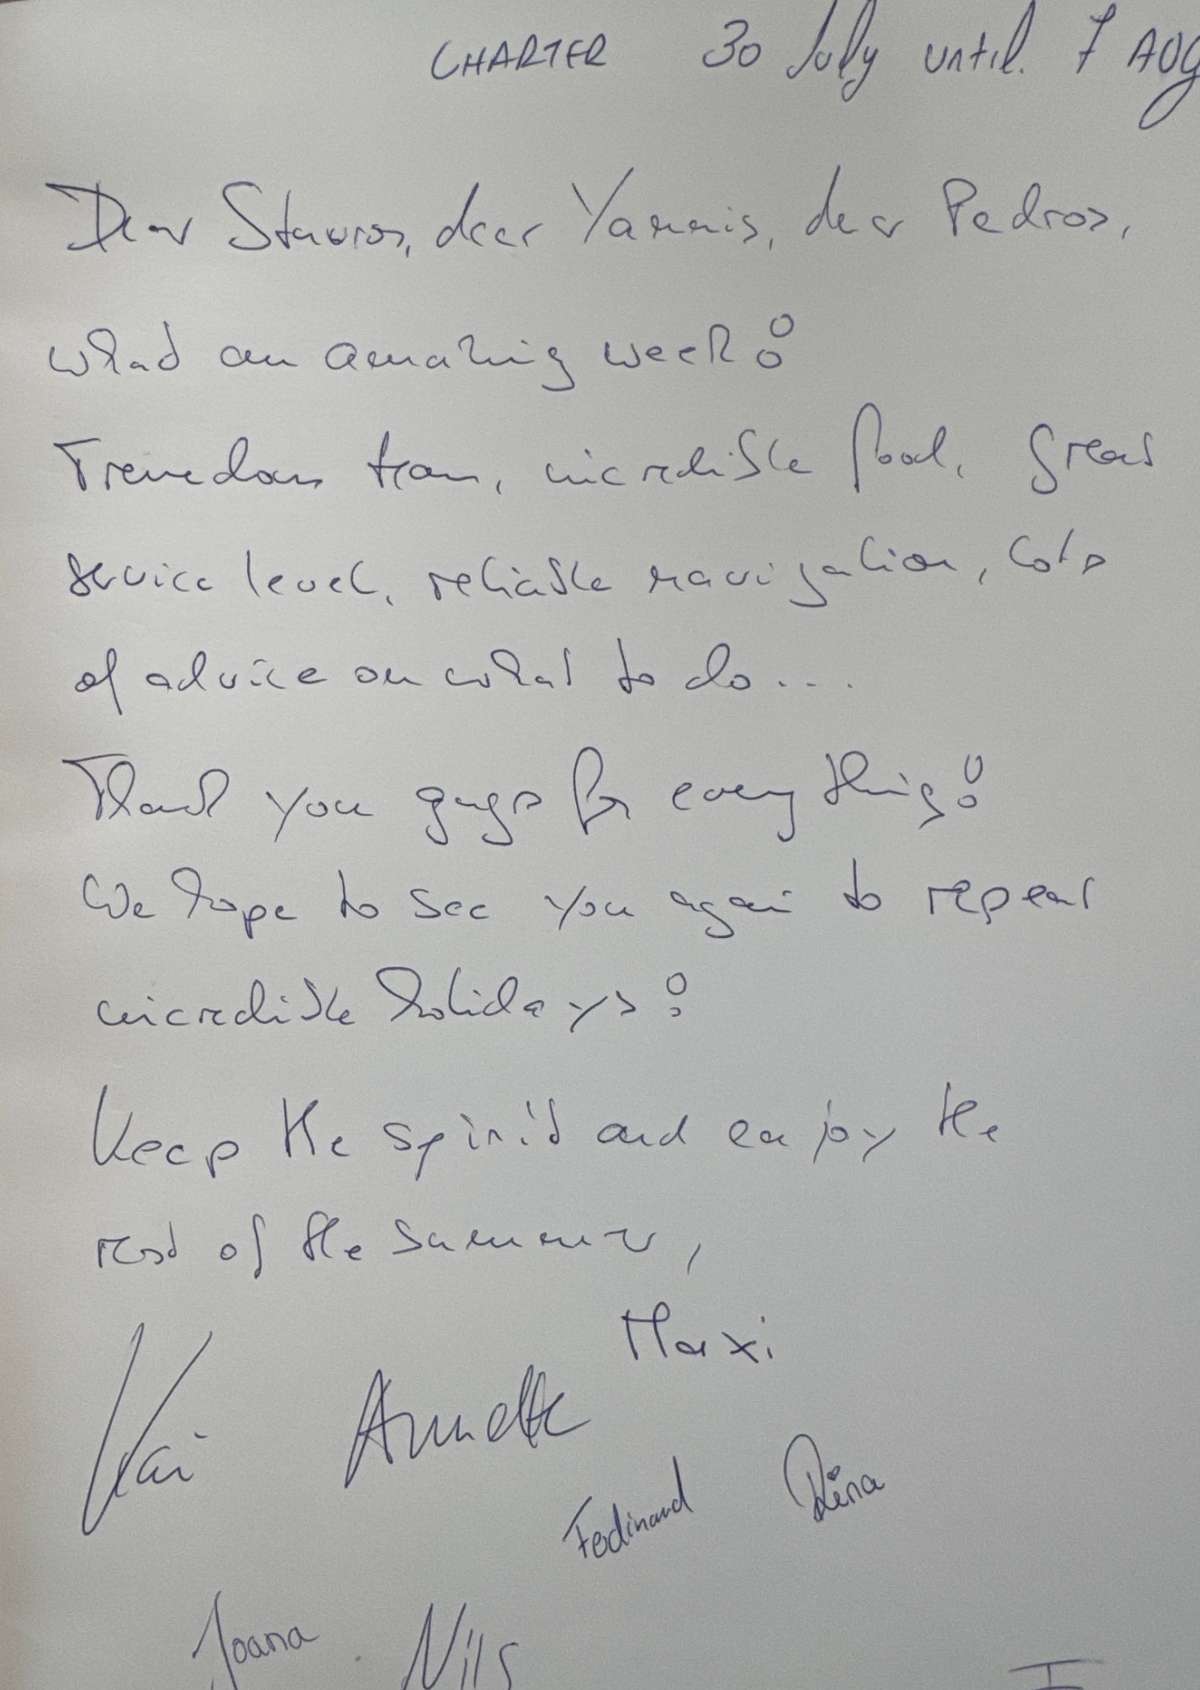 CHARTER 30 July until 7 AUG
Dear Stavros, dear Yannis, dear Pedros,
what an amazing week!
Tremendous team, incredible food, great
service level, reliable navigation, lots
of advice on what to do...
Thank you guys for everything!
We hope to see you again to repeat
incredible holidays!
Keep the spirit and enjoy the
rest of the summer,
Maxi
Kai Annette
Ferdinand Rina
Joana Nils